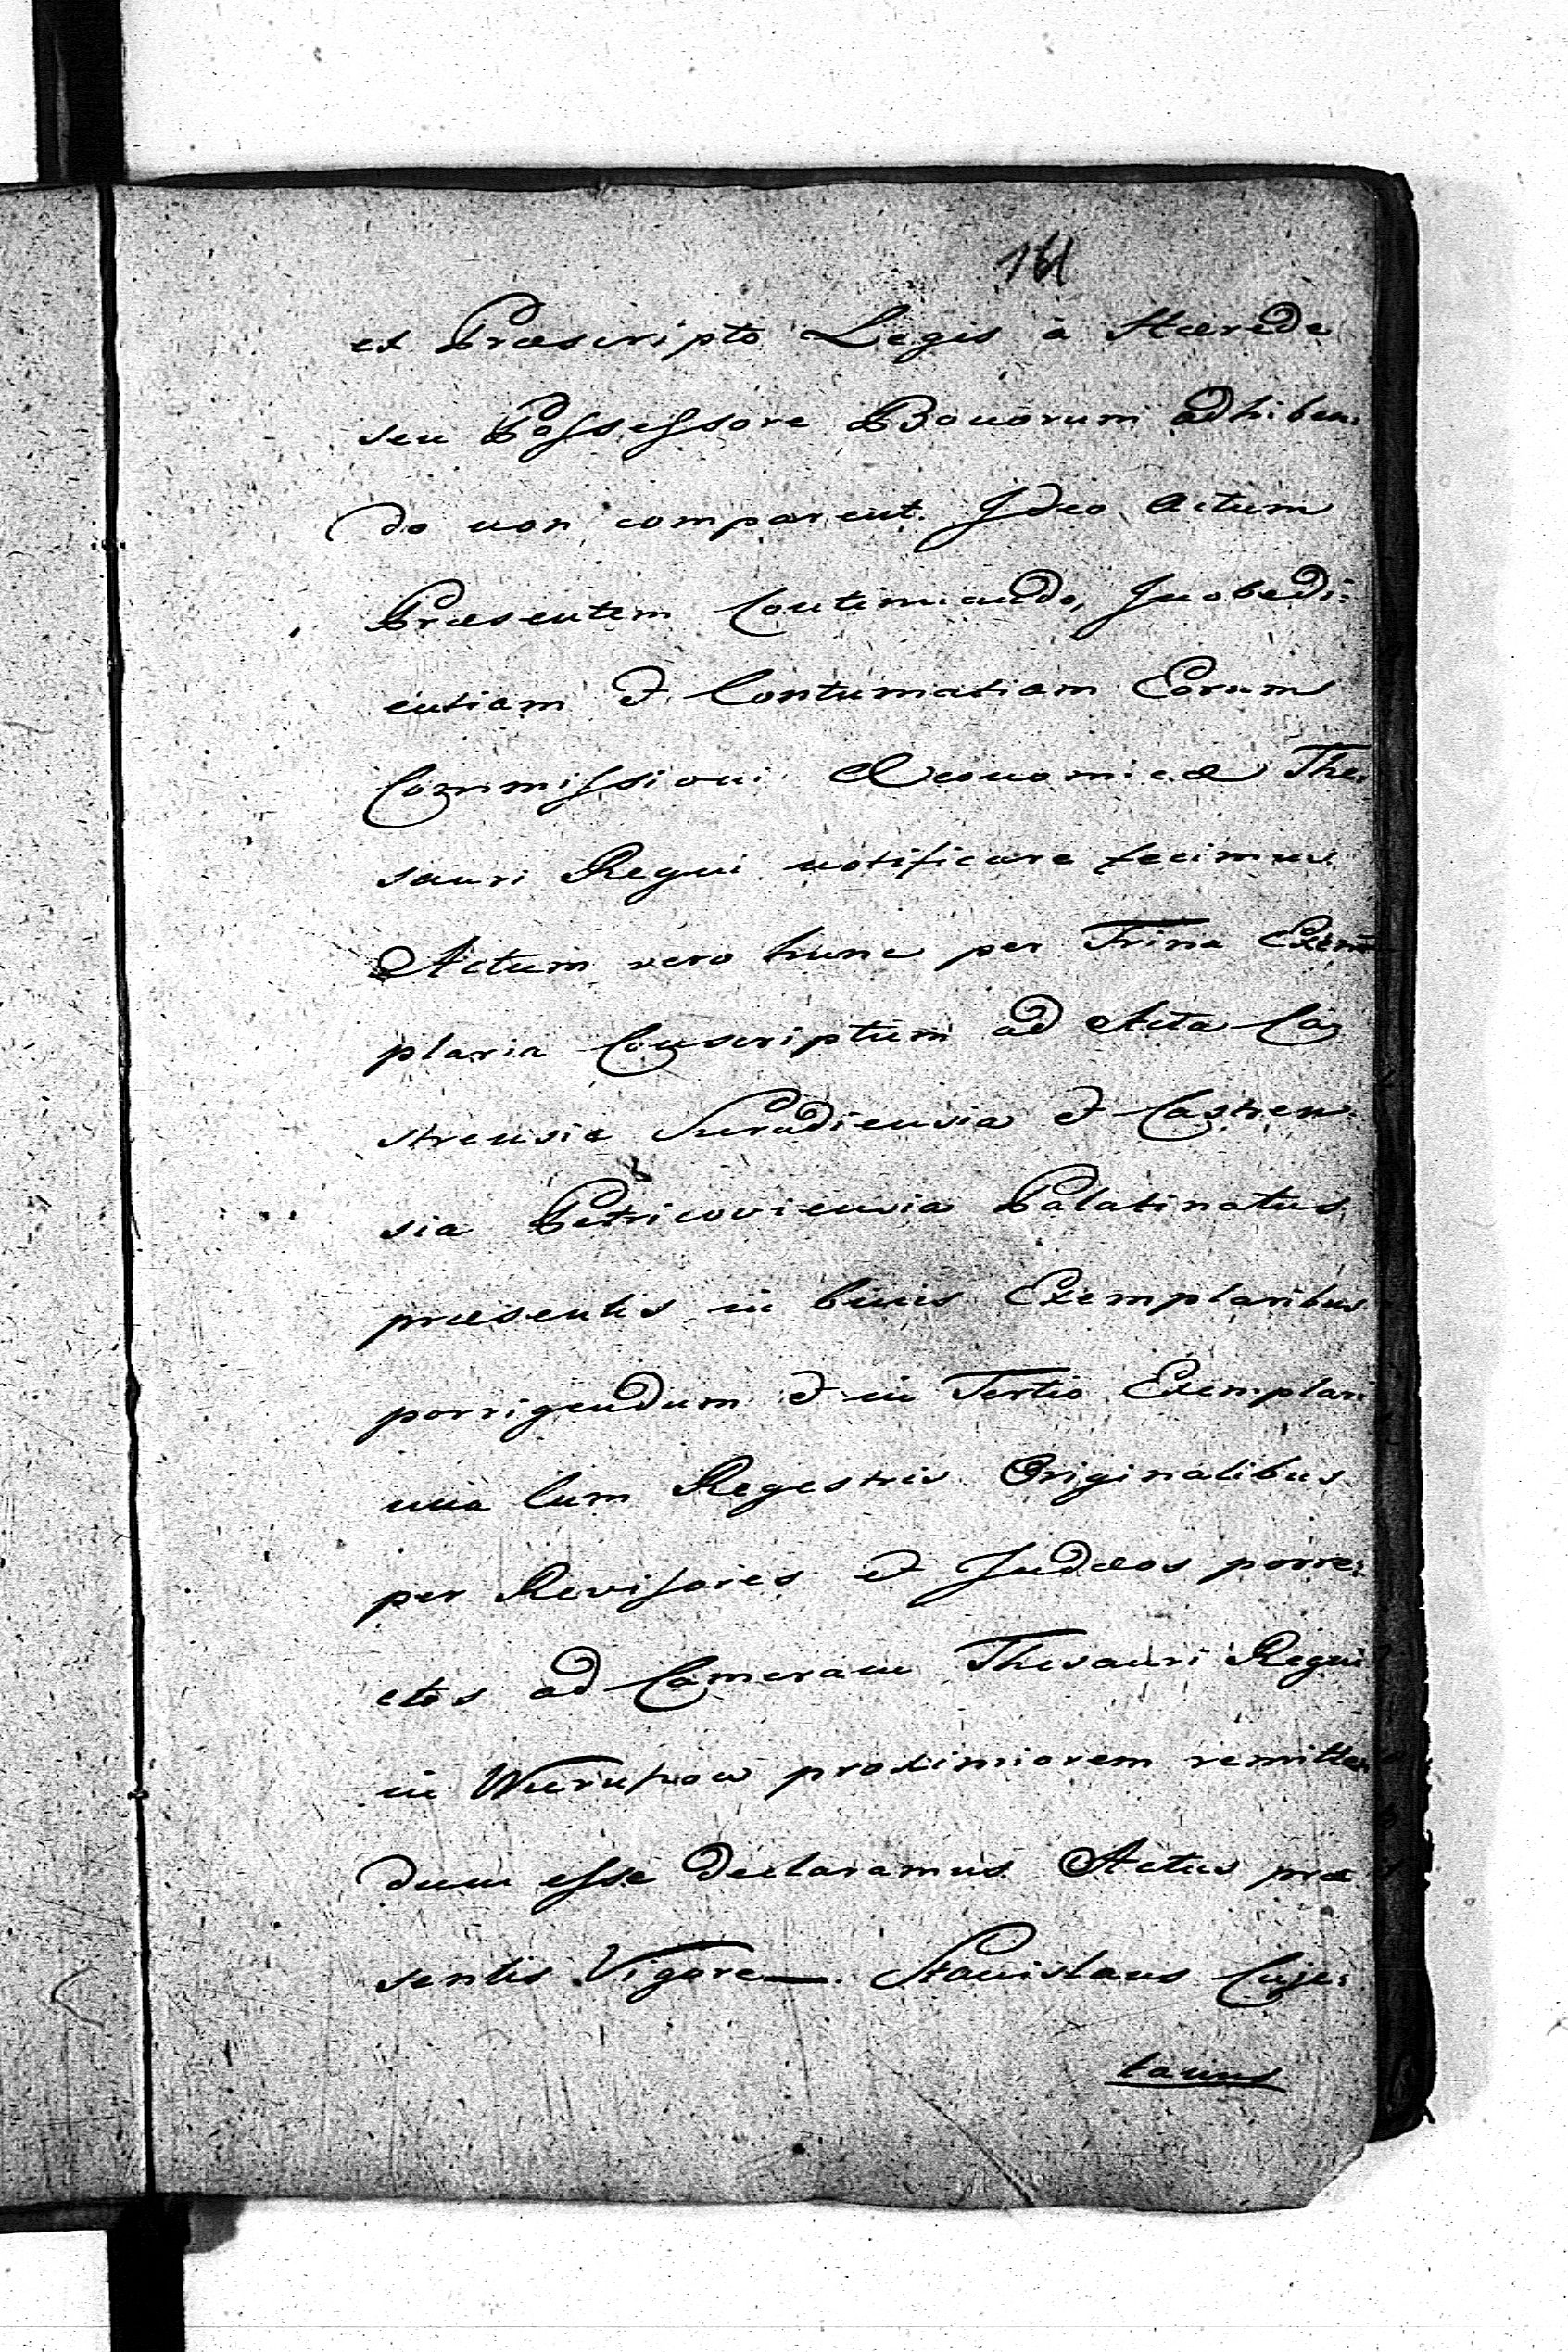 161
ex Præscripto Legis à Hærede
seu Possessore Bonorum adhiben:
do non comparent. Ideo Actum
Præsentem Continuando, Inobedi:
entiam et Contumatiam Eorum
Commissioni Œconomicæ The:
sauri Regni notificare fecimus
Actum vero hunc per Trina Exem
plaria Conscriptum ad Acta Ca
strensia Siradiensia et Castren:
sia Petricoviensia Palatinatus
præsentis in binis Exemplaribus
porrigendum et in Tertio Exemplari
una Cum Regestris Originalibus
per Revisores et Judæos porre:
ctos ad Cameram Thesauri Regni
in proximiorem remitten
dum esse declaramus. Actus præ
sentis Vigore—. Stanislaus Cuje:
tanus